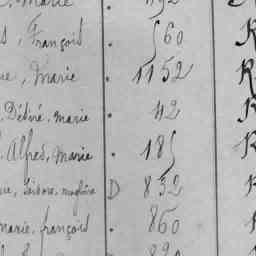 , Marie . 492
, François 560 R
, Marie . 1152 R
, Désiré, marie . 42 R
, Alfred, Marie . 185 R
, Isidore, D 832
marie, françois . 860